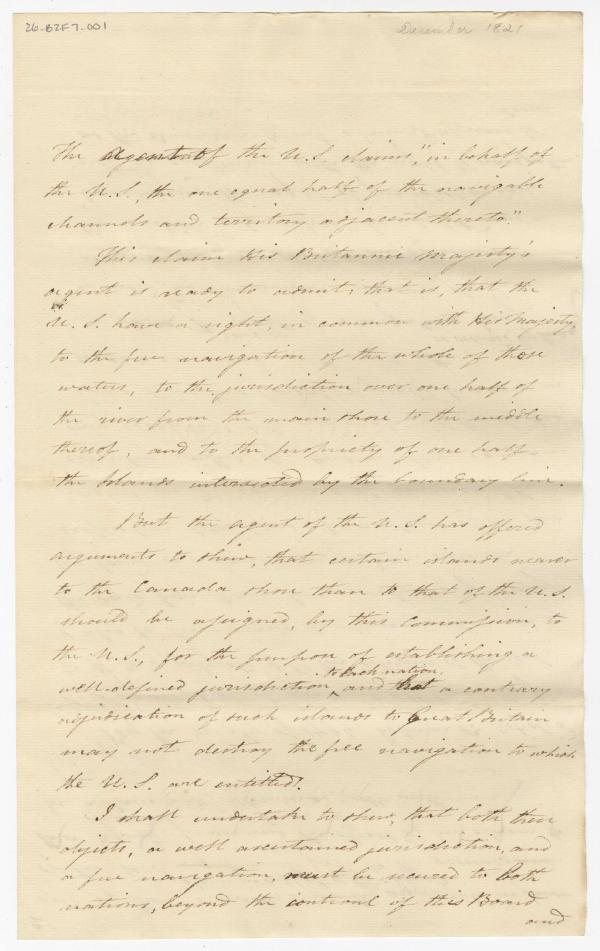 26-B2F7-001
December 1821
The agent of the U.S. claims, "in behalf of
the U.S., the one equal half of the navigable
channels and territory adjacent thereto."
This claim His Britannic Majesty's
agent is ready to admit; that is, that the
U.S. have a right, in common with His Majesty,
to the free navigation of the whole of those
waters, to the jurisdiction over one half of
the river from the main shore to the middle
thereof, and to the propriety of one half
the Islands intersected by the boundary line.
But the agent of the U.S. has offered
arguments to shew, that certain islands nearer
to the Canada shore than to that of the U.S.
should be assigned, by this Commission, to
the U.S., for the purpose of establishing a
to each nation,
well-defined jurisdiction, and that a contrary
adjudication of such islands to Great Britain
may not destroy the free navigation to which
the U.S. are entitled.
I shall undertake to shew, that both these
objects, a well ascertained jurisdiction, and
a free navigation, must be secured to both
nations, beyond the controul of this Board
and